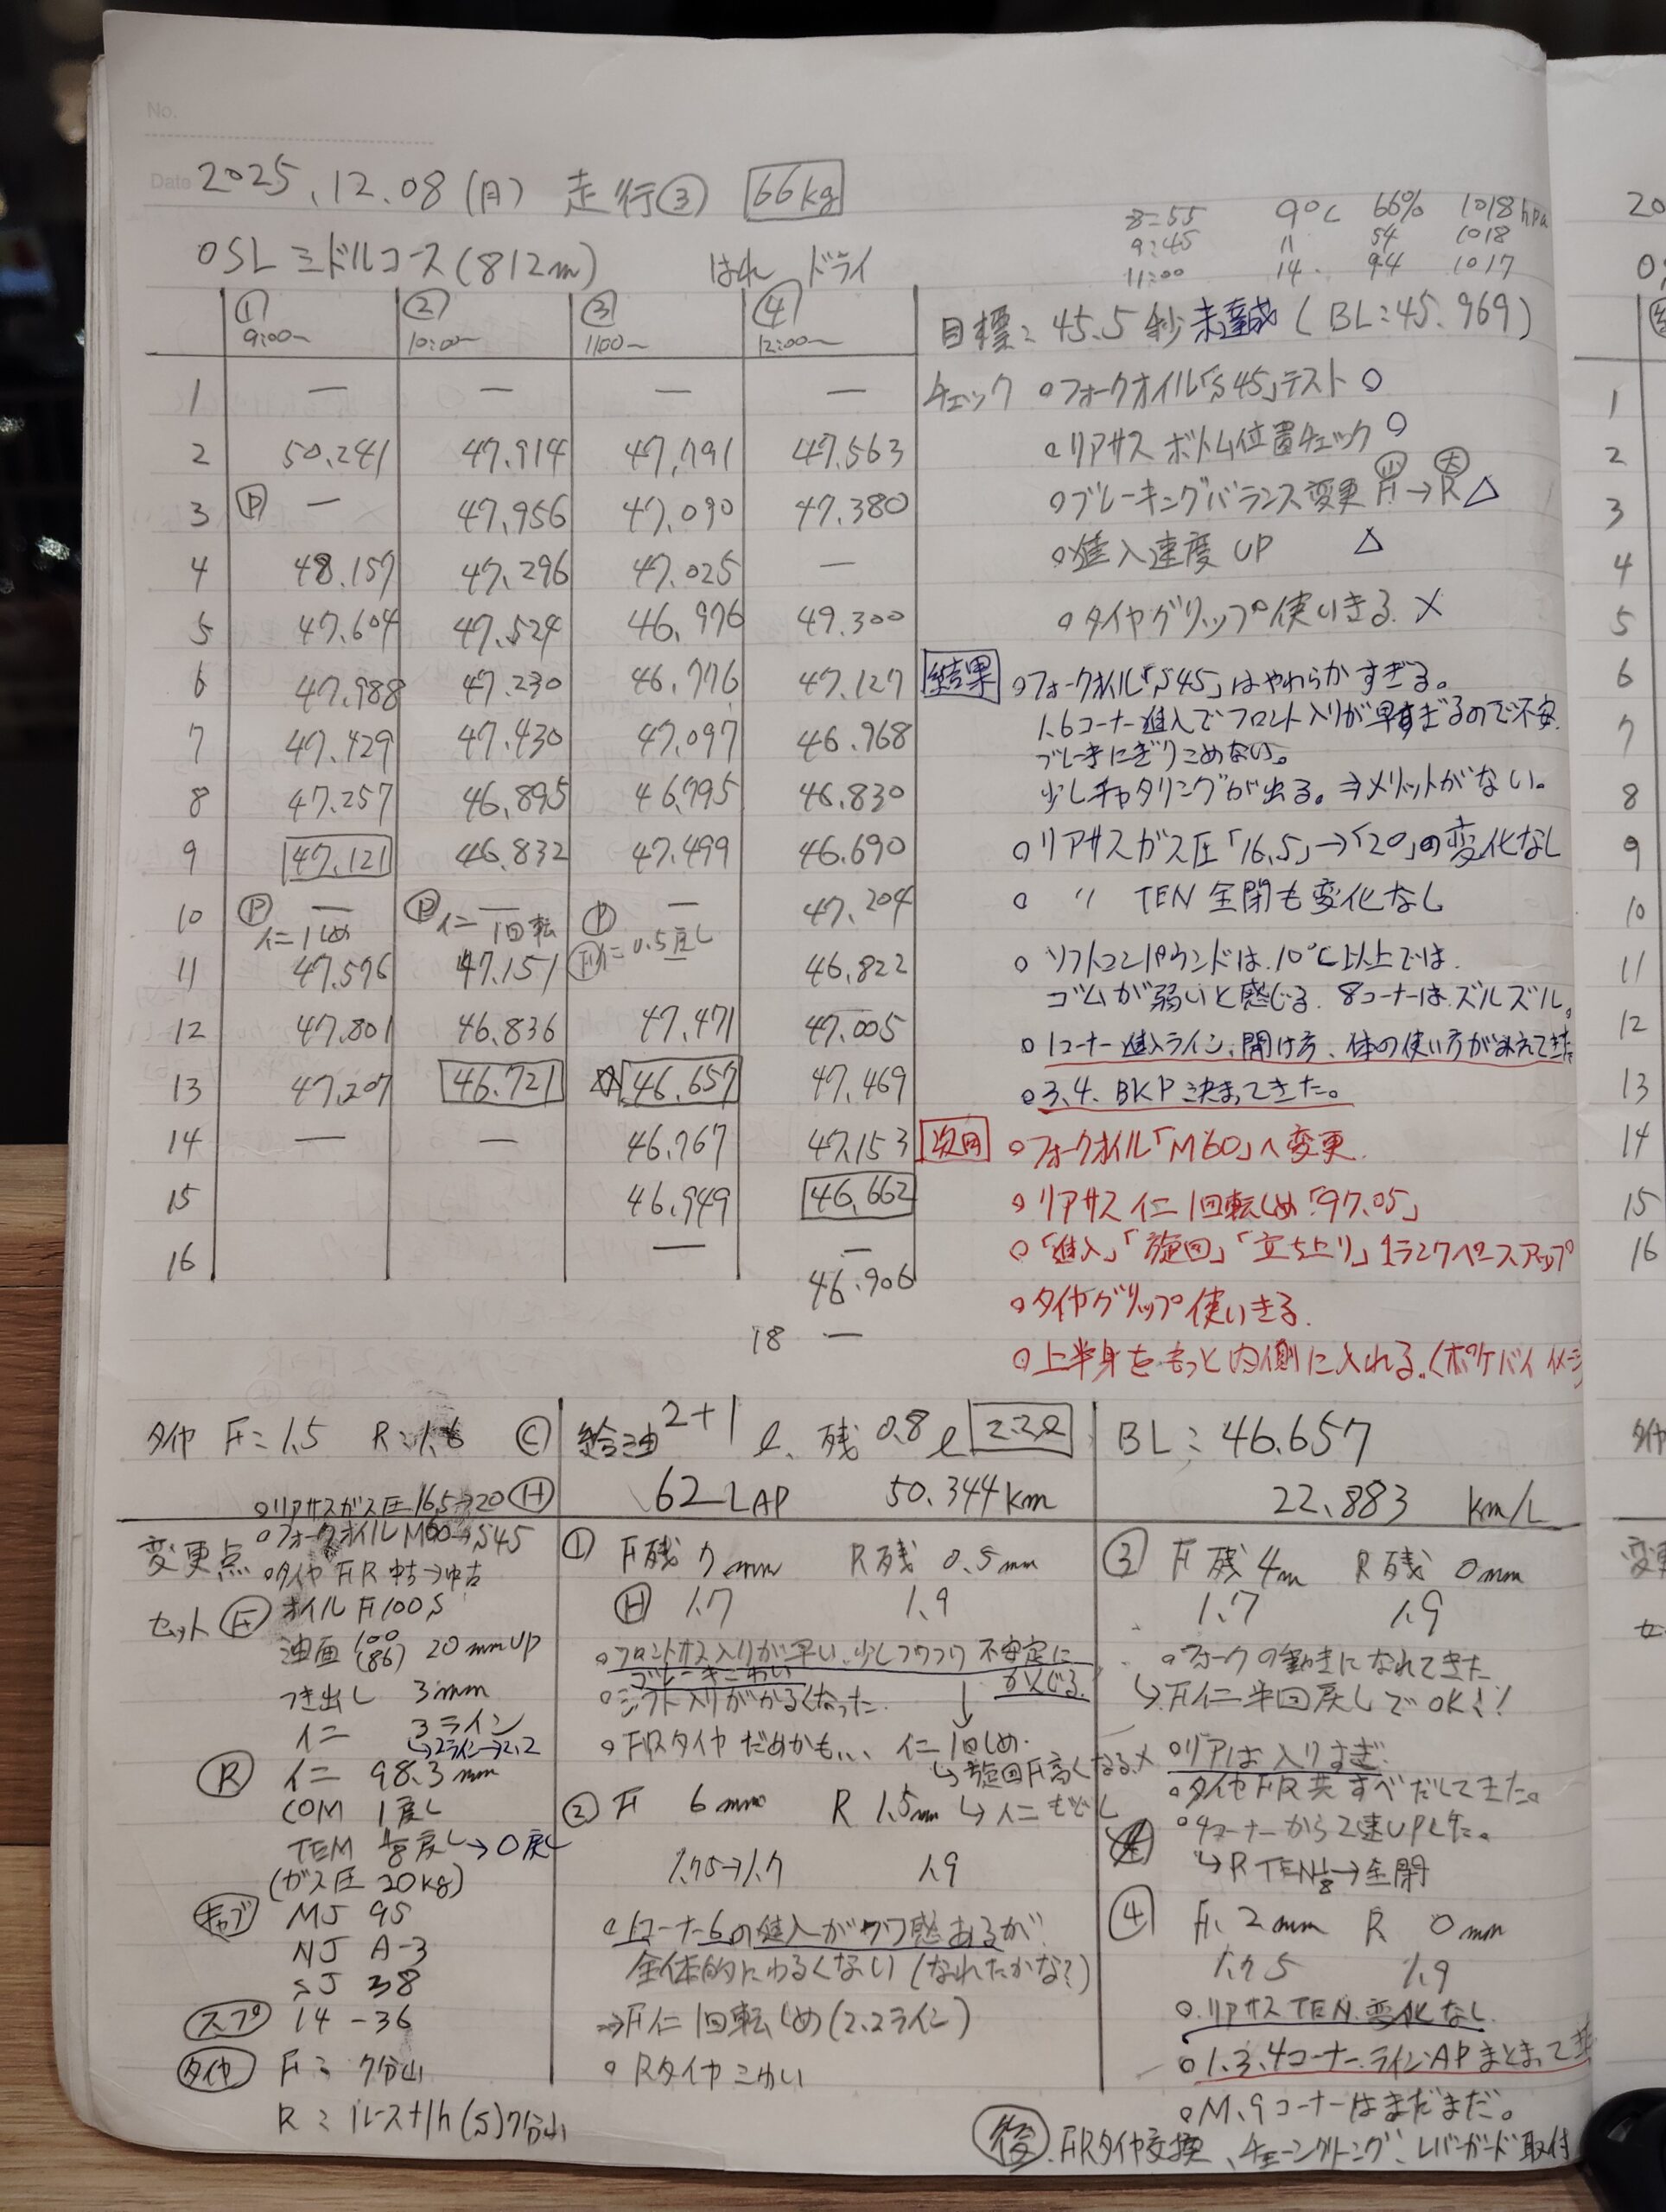 No.
Date 2025.12.08(月) 走行③ 66kg
8:55 9℃ 66% 1018hpa
9:45 11 54 1018
11:00 14. 94 1017
OSL ミドルコース(812m) はれ ドライ
① 9:00～ ② 10:00～ ③ 11:00～ ④ 12:00～
1 — — — —
2 50.241 47.914 47.791 47.563
3 Ⓟ — 47.956 47.090 47.380
4 48.157 47.296 47.025 —
5 47.604 47.524 46.976 49.300
6 47.988 47.230 46.776 47.127
7 47.429 47.430 47.097 46.968
8 47.257 46.895 46.795 46.830
9 47.121 46.832 47.499 46.690
10 Ⓟ — Ⓟ — Ⓟ — 47.204
イニ1しめ イニ1回転 Ⓕイニ0.5戻し
11 47.576 47.151 46.822
12 47.801 46.836 47.471 47.005
13 47.207 46.721 ☆46.657 47.469
14 — — 46.767 47.153
15 46.949 46.662
16 — —
46.906
18 —
目標: 45.5秒 未達成 (BL:45.969)
チェック ○フォークオイル「S45」テスト ○
○リアサス ボトム位置チェック ○
○ブレーキングバランス変更 F㊤→R㊅ △
○進入速度UP △
○タイヤグリップ使いきる ×
結果 ○フォークオイル「S45」はやわらかすぎる。
1.6コーナー進入でフロント入りが早すぎるので不安.
ブレーキにぎりこめない。
少しチャタリングが出る。⇒メリットがない。
○リアサスガス圧「16.5」→「20」の変化なし
○ 〃 TEN 全閉も変化なし
○ ソフトコンパウンドは.10℃以上では.
ゴムが弱いと感じる. 8コーナーはズルズル。
○1コーナー進入ライン、開け方、体の使い方がみえてきた
○3.4. BKP 決まってきた。
次回 ○フォークオイル「M60」へ変更.
○リアサスイニ1回転しめ「97.05」
○「進入」「旋回」「立ち上り」1ランクペースアップ
○タイヤグリップ使いきる.
○上半身をもっと内側に入れる.(ポケバイイメージ
タイヤ F=1.5 R:1.6 Ⓒ
給油 2+1 ℓ. 残 0.8ℓ 2.2ℓ
BL: 46.657
62 LAP 50.344km 22.883 km/L
変更点
○リアサスガス圧16.5→20 Ⓗ
○フォークオイルM60→S45
○タイヤ FR 中古→中古
セット Ⓕ オイル F100S
油面 100(86) 20mmUP
つき出し 3mm
イニ 3ライン
↳2ライン→2.2
Ⓡ イニ 98.3mm
COM 1戻し
TEM 1/8戻し→0戻し
(ガス圧 20kg)
キャブ MJ 95
NJ A-3
SJ 38
スプ 14-36
タイヤ F: 7分山
R: 1レース+1h(S)7分山
① F残 7mm R残 0.5mm
Ⓗ 1.7 1.9
○フロントサス入りが早い.少しフワフワ 不安定に
ブレーキこわい かんじる.
○シフト入りがかるくなった.
○FRタイヤ だめかも... イニ1回しめ.
↳旋回F高くなる×
↳イニもどし
② F 6mm R 1.5mm
1.75→1.7 1.9
○1コーナー6の進入がフワ感あるが
全体的にわるくない(なれたかな?)
⇒Fイニ1回転しめ(2.2ライン)
○Rタイヤこわい
③ F残4m R残 0mm
1.7 1.9
○フォークの動きになれてきた
↳Fイニ半回戻しでOK!!
○リアは入りすぎ.
○タイヤFR共すべりだしてきた。
○4コーナーから2速UPした。
↳R TEN1/8→全閉
④ F. 2mm R 0mm
1.75 1.9
○リアサスTEN.変化なし.
○1.3.4コーナー.ラインAPまとまって
○M.9コーナーはまだまだ。
後 FRタイヤ交換、チェーンクリーニング、レバーガード取付